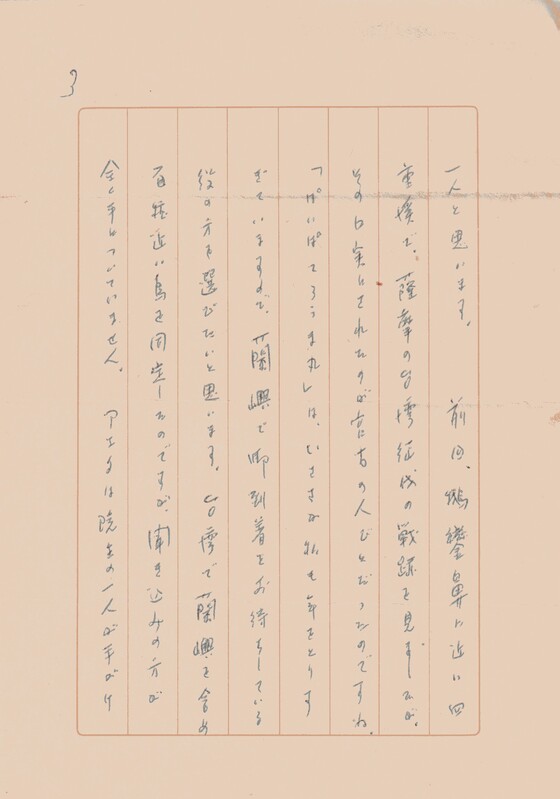 3
一人と思います。　前回、鵝鑾鼻に近い四
重溪で、薩摩の台湾征伐の戦跡を見ましたが、
その口実にされたのが宮古の人びとだったのですね。
「ぱいぱてろうま丸」は、いささか私も年をとりす
ぎていますので、蘭嶼で御到着をお待ちしている
役の方を選びたいと思います。台湾で蘭嶼を含め
百種近い鳥を同定したのですが、聞き込みの方が
全く手がついていません。　アミ族は院生の一人が手がけ